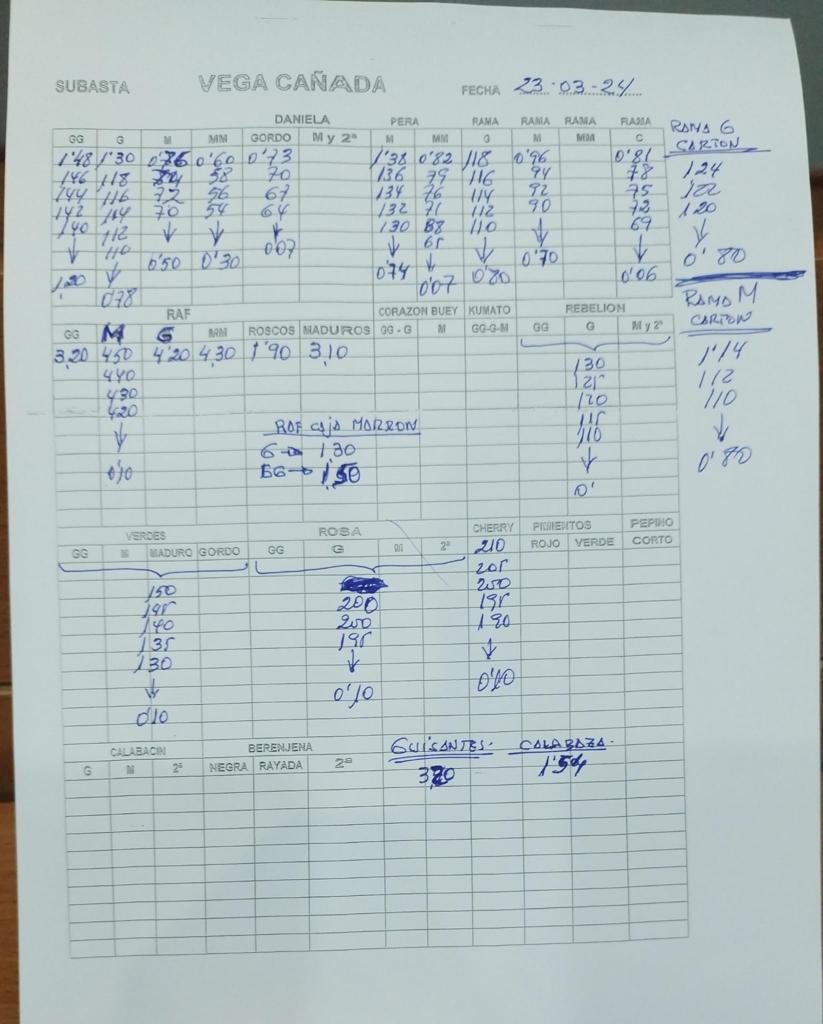 SUBASTA VEGA CAÑADA FECHA 23-03-24
DANIELA PERA RAMA RAMA RAMA RAMA
GG G M MM GORDO M y 2ª M MM G M MM C
RAMA G
CARTON
1'48 1'30 0'76 0'60 0'73 1'38 0'82 118 0'96 0'81
146 118 58 70 136 79 116 94 78 124
144 116 72 56 67 134 76 114 92 75 122
142 114 70 54 64 132 71 112 90 72 120
140 112 ↓ ↓ ↓ 130 110 ↓ 69 ↓
↓ 110 0'50 0'30 0'07 ↓ 65 ↓ 0'70 ↓ 0'80
1.20 ↓ 0'74 ↓ 0'80 0'06
0'78 0'07
RAF CORAZON BUEY KUMATO REBELION
GG M G MM ROSCOS MADUROS GG - G M GG-G-M GG G M y 2ª
RAMA M
CARTON
3,20 450 4'20 4,30 1'90 3,10
440 130 1'14
430 125 112
420 120 110
↓ RAF CAJA MARRON 115 ↓
G → 1,30 110 0'80
0'10 GG → 1,50 ↓
0'
VERDES ROSA CHERRY PIMIENTOS PEPINO
GG M MADURO GORDO GG G M 2ª 210 ROJO VERDE CORTO
205
150 200
145 200 195
140 200 190
135 195 ↓
130 ↓
↓ 0'10 0'10
0'10
CALABACIN BERENJENA GUISANTES. CALABAZA.
G M 2ª NEGRA RAYADA 2ª 1'54